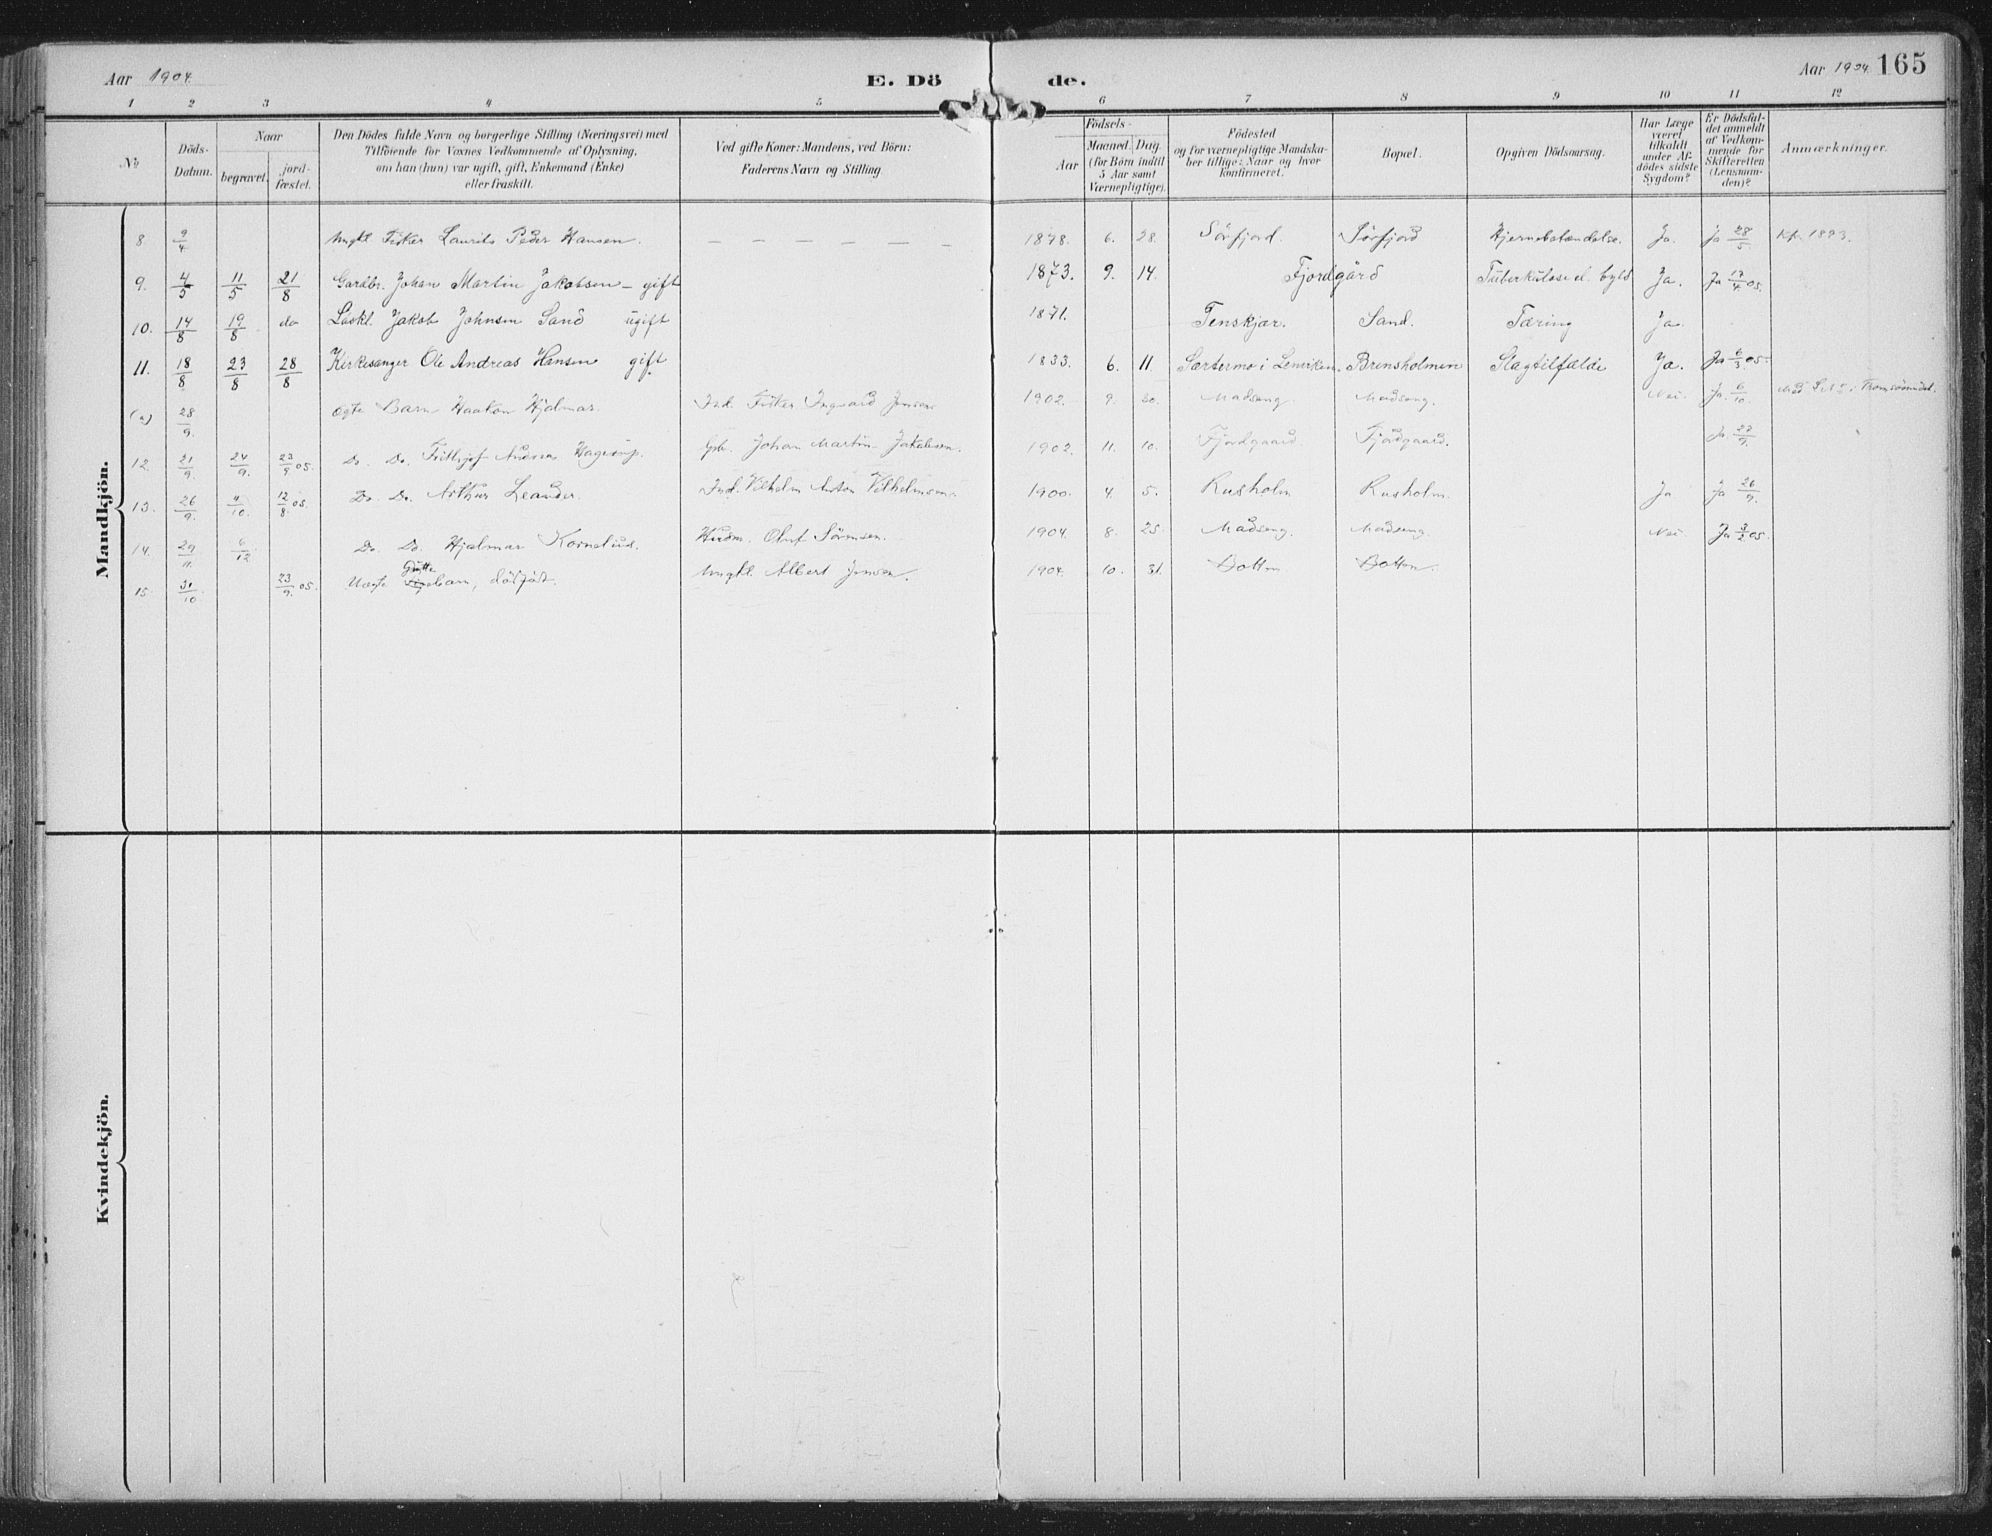 Aar 1904. E. Dö de. Aar 1904. 165
1 2 3 4 5 6 7 8 9 10 11 12
No
Döds-Datum.
Naar
begravet.
jord-fæstet.
Den Dödes fulde Navn og borgerlige Stilling (Næringsvei) med
Tilföiende for Voxnes Vedkommende af Oplysning,
om han (hun) var ugift, gift, Enkemand (Enke)
eller fraskilt.
Ved gifte Koner: Mandens, ved Börn:
Faderens Navn og Stilling
Födsels-
Aar
Maaned. Dag.
(for Börn indtil
5 Aar samt
Værnepligtige).
Födested
og for værnepligtige Mandska-
ber tillige: Naar og hvor
konfirmeret.
Bopæl.
Opgiven Dödsaarsag.
Har Læge
været
tilkaldt
under Af-
dödes sidste
Sygdom?
Er Dödsfal-
det anmeldt
af Vedkom-
mende for
Skifteretten
(Lensman-
den)?
Anmærkninger.
Mandkjön.
8 9/4 Ungkl. Fisker Laurits Peder Hansen. — — — — — — — 1878. 6. 28. Sörfjord. Sörfjord Hjernebetændelse. Ja. Ja 28/5. Kfr. 1893.
9. 4/5 11/5 21/8 Gardbr. Johan Martin Jakobsen — gift 1873. 9. 14. Fjordgård Tuberkuløse el. byld Ja. Ja 17/4 05.
10. 14/8 19/8 do Løskl. Jakob Johnsen Sand ugift 1871. Tenskjær. Sand. Tæring Ja.
11. 18/8 23/8 28/8 Kirkesanger Ole Andreas Hansen gift 1833. 6. 11. Sætermo i Lenviken. Brensholmen Slagtilfælde Ja. Ja 6/3 05.
(a) 28/9. ægte Barn Haakon Hjalmar. Ind. Fisker Ingvard Jensen 1902. 9. 20. Madseng Madseng. Nei. Ja. 6/10. i Tromsösundet.
12. 21/9. 24/9. 23/9. 05. Do. Do. Frithjof Andreas Hagerup. Gbr. Johan Martin Jakobsen. 1902. 11. 10. Fjordgaard Fjordgaard. Ja. 27/9.
13. 26/9. 4/10. 12/8. 05. Do. Do. Arthur Leander. Ind. Vilhelm Anton Vilhelmsen. 1900. 4. 5. Rusholm Rusholm. Ja Ja 26/9.
14. 29/11. 6/12 Do. Do. Hjalmar Kornelius. Husm. Oluf Sörensen. 1904. 8. 25. Madseng. Madseng Nei. Ja 3/2 05.
15. 31/10 23/9. 05. Uægte Gutte barn, dödfödt. Ungkl. Albert Jensen. 1904. 10. 31. Botten Botten.
Kvindekjön.